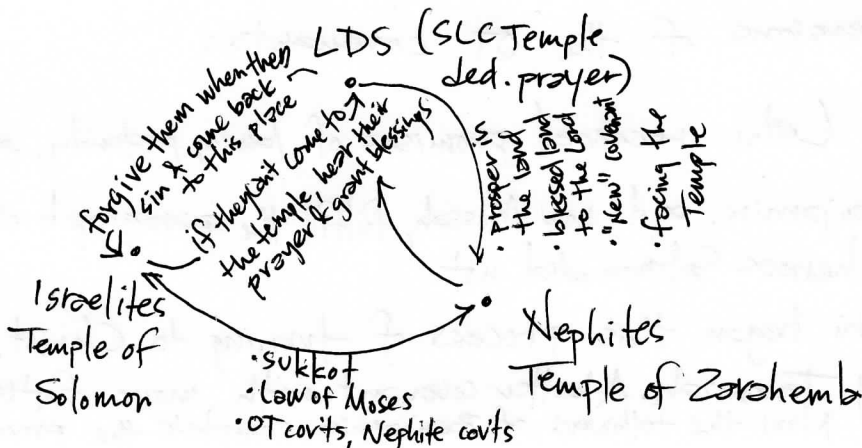 LDS (SLC Temple
ded. prayer)
forgive them when they
sin & come back
to this place
If they can't come to
the temple, hear their
prayer & grant blessings
• prosper in
the land
• blessed land
to the Lord
• "New" covenant
• facing the
Temple
Israelites
Temple of
Solomon
• sukkot
• Law of Moses
• OT cov'ts, Nephite cov'ts
Nephites
Temple of Zarahemla